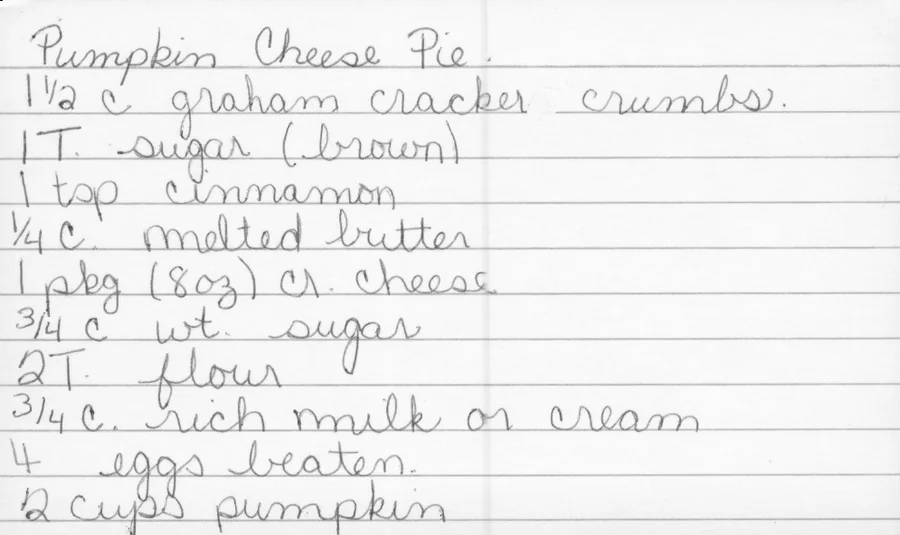 Pumpkin Cheese Pie.
1 1/2 c graham cracker crumbs.
1 T. sugar (brown)
1 tsp cinnamon
1/4 c. melted butter
1 pkg (8oz) cr. cheese
3/4 c wt. sugar
2T. flour
3/4 c. rich milk or cream
4 eggs beaten.
2 cups pumpkin